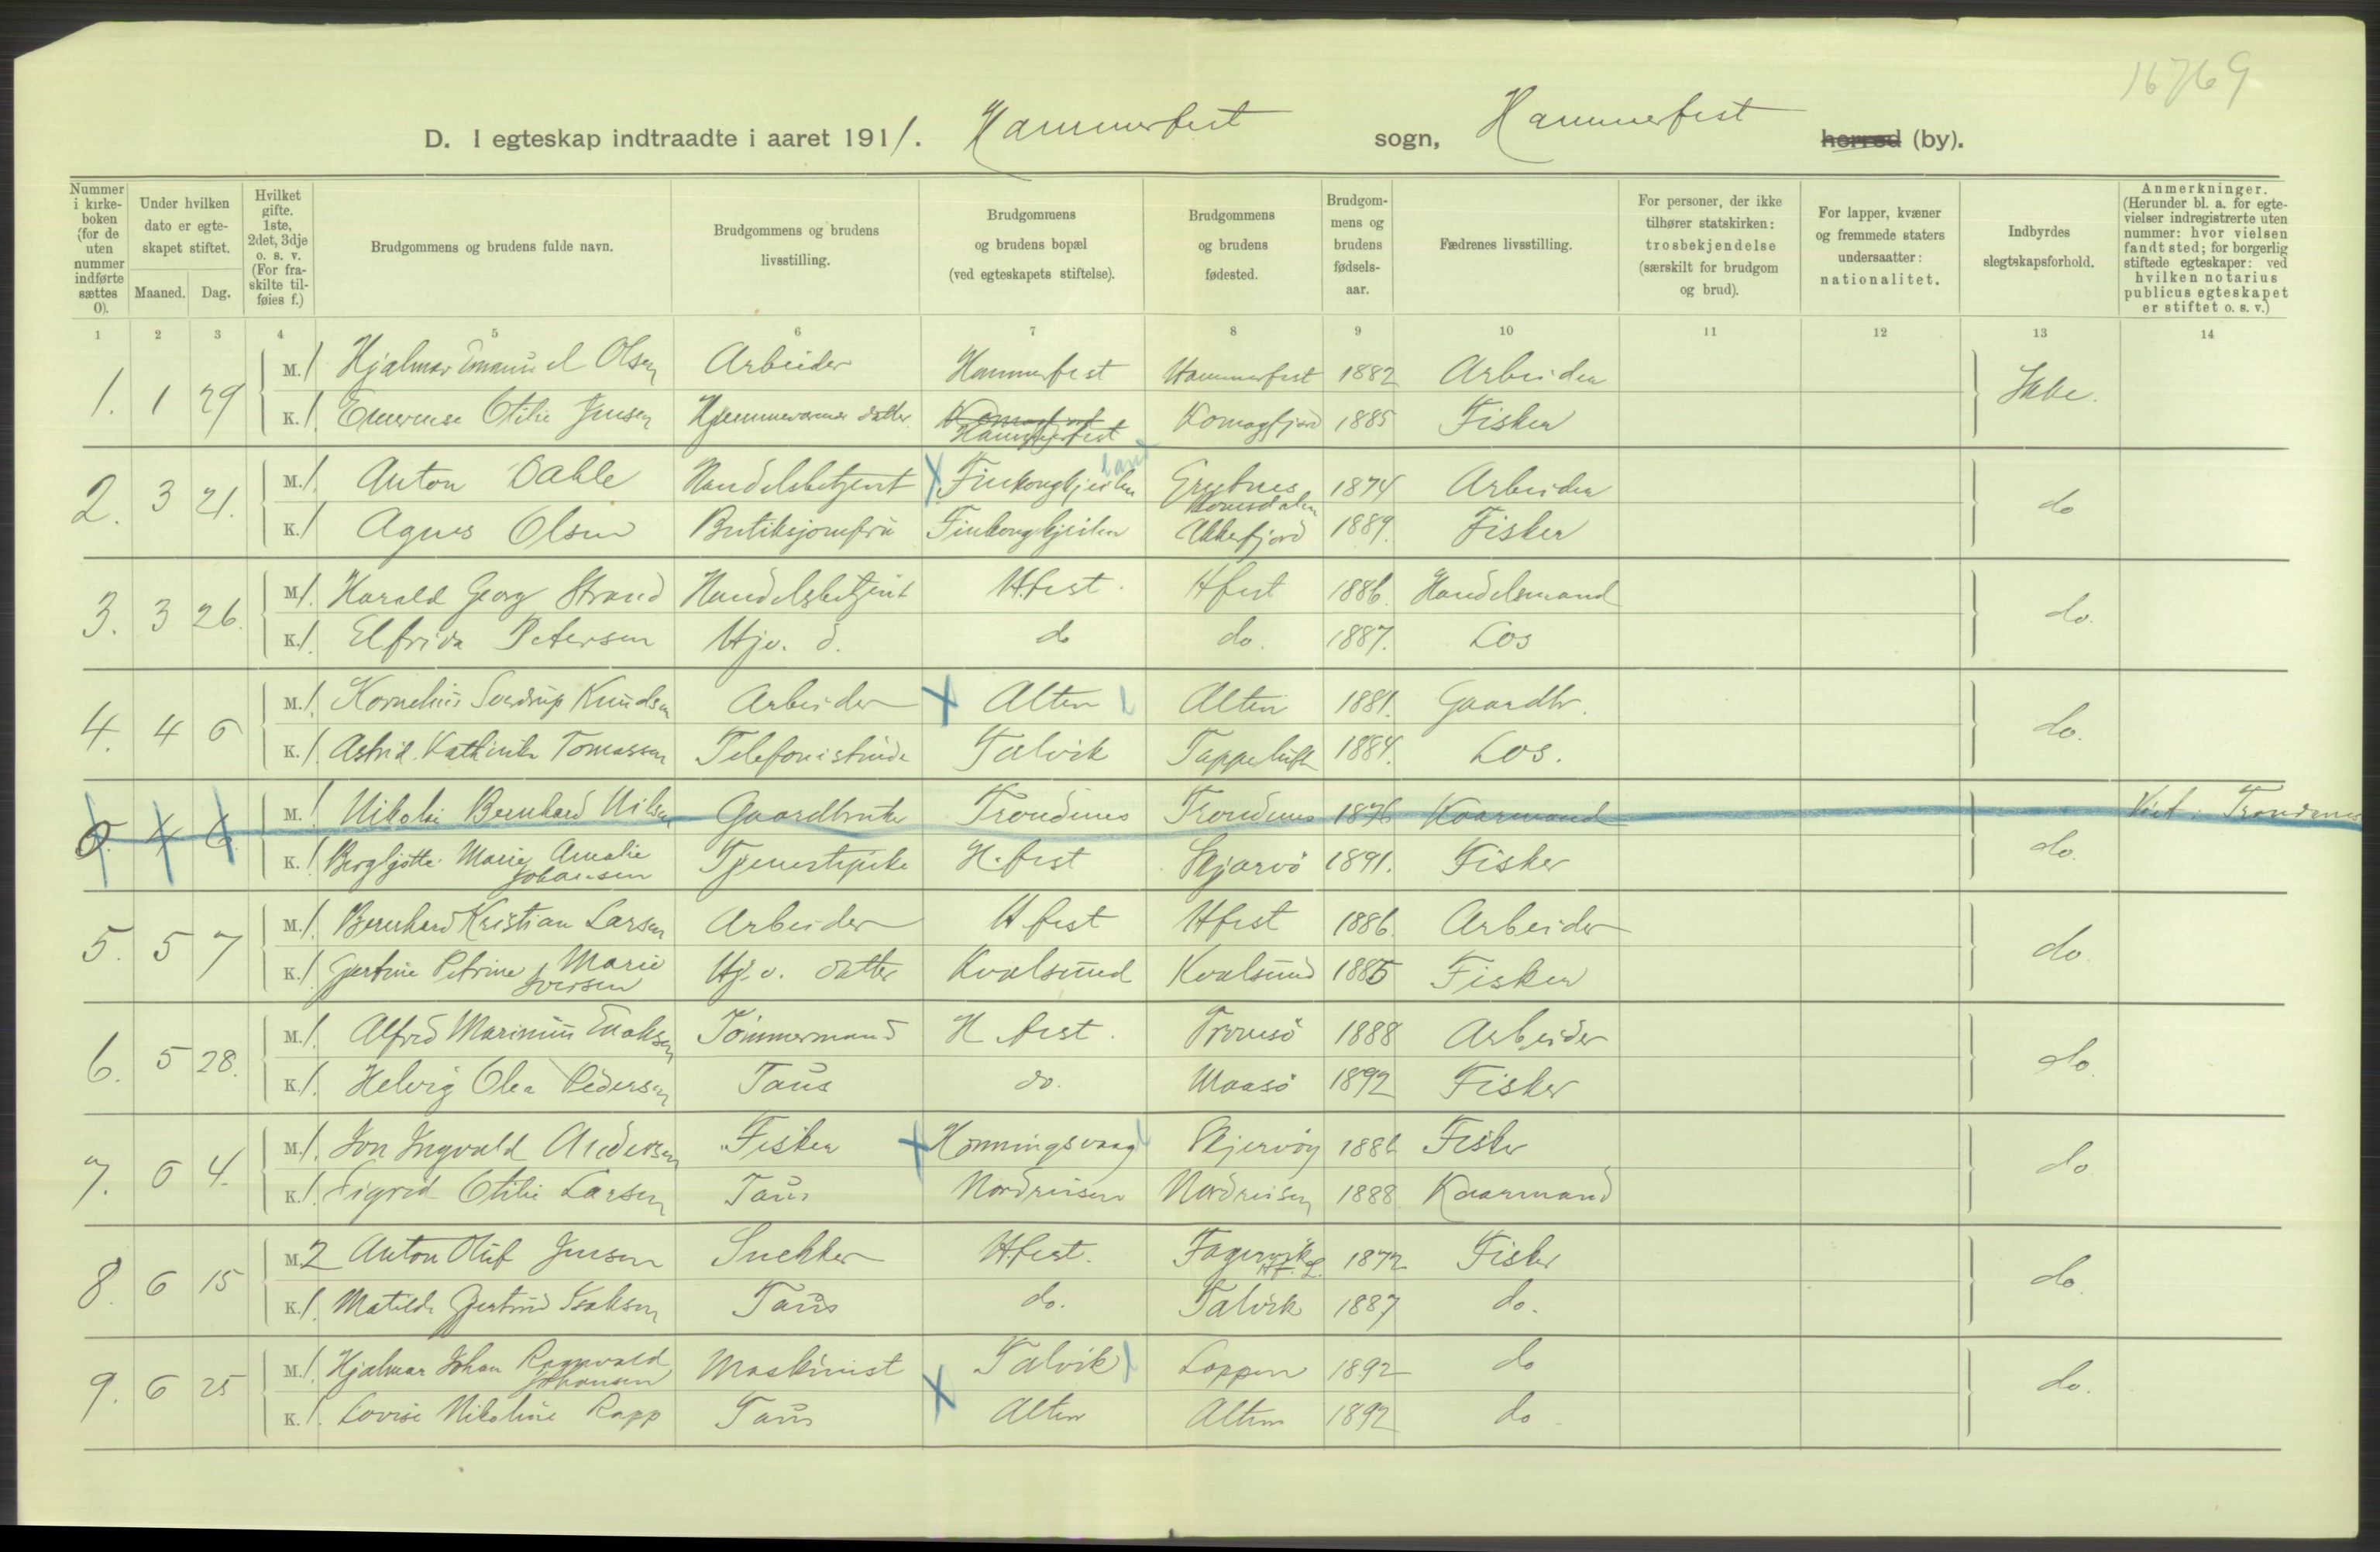 16769
D. I egteskap indtraadte i aaret 1911. Hammerfest sogn, Hammerfest herred (by).
Nummer i kirkeboken (for de uten nummer indførte sættes 0).
Under hvilken dato er egteskapet stiftet.
Maaned. Dag.
Hvilket gifte. 1ste, 2det, 3dje o. s. v. (For fraskilte tilføies f.)
Brudgommens og brudens fulde navn.
Brudgommens og brudens livsstilling.
Brudgommens og brudens bopæl (ved egteskapets stiftelse).
Brudgommens og brudens fødested.
Brudgommens og brudens fødselsaar.
Fædrenes livsstilling.
For personer, der ikke tilhører statskirken: trosbekjendelse (særskilt for brudgom og brud).
For lapper, kvæner og fremmede staters undersaatter: nationalitet.
Indbyrdes slegtskapsforhold.
Anmerkninger. (Herunder bl. a. for egtevielser indregistrerte uten nummer: hvor vielsen fandt sted; for borgerlig stiftede egteskaper: ved hvilken notarius publicus egteskapet er stiftet o. s. v.)
1 2 3 4 5 6 7 8 9 10 11 12 13 14
1. 1 29 M. 1 Hjalmar Emanuel Olsen Arbeider Hammerfest Hammerfest 1882 Arbeider Ikke.
K. 1. Otilie Jensen Hjemmeværende datter. Komagfjord Hammerfest Komagfjord 1885 Fisker
2. 3 21. M. 1. Anton Dahle Handelsbetjent Finkongkjeilen Romsdalen 1874 Arbeider do
K. 1 Agnes Olsen Butiksjomfru Finkongkjeilen Akkarfjord 1889. Fisker
3. 3 26. M. 1. Harald Georg Strand Handelsbetjent H.fest. Hfest 1886. Handelsmand do.
K. 1. Elfrida Petersen Hjv. d. do do. 1887. Los
4. 4 6 M. 1. Kornelius Sverdrup Knudsen Arbeider Alten Alten 1881. Gaardbr. do.
K. 1. Astrid Kathinka Tomassen Telefonistinde Talvik Tappeluft 1884. Los.
0. 4 6. M. 1 Nikolai Bernhard Nilsen Gaardbruker Trondenes Trondenes 1876 Kaarmand do. Viet i Trondenes
K. 1 Bergljotte Marie Amalie Johansen Tjenestepike H.fest Skjærvö 1891. Fisker
5. 5 7 M. 1. Bernhard Kristian Larsen Arbeider H fest Hfest 1886. Arbeider do.
K. 1. Gjertine Petrine Marie Iversen Hj. v. datter Kvalsund Kvalsund 1885 Fisker
6. 5 28. M. 1. Alfred Marinius Enoksen Tömmermand H fest. Tromsö 1888 Arbeider do.
K. 1. Helvig Olea Pedersen Taus do. Maasö 1892 Fisker
7. 6 4. M. 1. Jon Ingvald Andersen Fisker Honningsvaag Skjervöy 1886 Fisker do.
K. 1. Sigrid Otilie Larsen Taus Nordreisen Nordreisen 1888 Kaarmand
8. 6 15 M. 2 Anton Oluf Jensen Snekker Hfest. Fagervik H.f. L. 1872 Fisker do.
K. 1. Matilde Gjertrud Isaksen Taus do. Talvik 1887 do.
9. 6 25 M. 1. Hjalmar Johan Ragnvald Johansen Maskinist Talvik Loppen 1892 do do.
K. 1. Lovise Nikoline Rapp Taus Alten Alten 1892 do